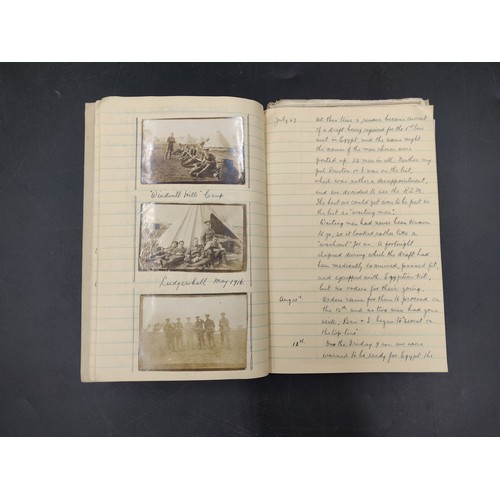 "Windmill Hill" Camp
Ludgershall May 1916.
July 23 At this time a rumour became current
of a draft being required for the 1st line
unit in Egypt and the same night
the names of the men chosen were
posted up. 22 men in all. Neither my
pal Preston or I was on the list,
which was rather a disappointment,
and we decided to see the R.S.M.
The best we could get was to be put on
the list as "waiting men".
Waiting men had never been known
to go, so it looked rather like a
"washout" for us. A fortnight
elapsed during which the draft had
been medically examined, passed fit,
and equipped with Egyptian kit,
but no orders for their going.
Aug 10th Orders came for them to proceed on
the 12th and as two men had gone
sick, & I began to
12th On the Friday 9 men were
warned to be ready for Egypt the